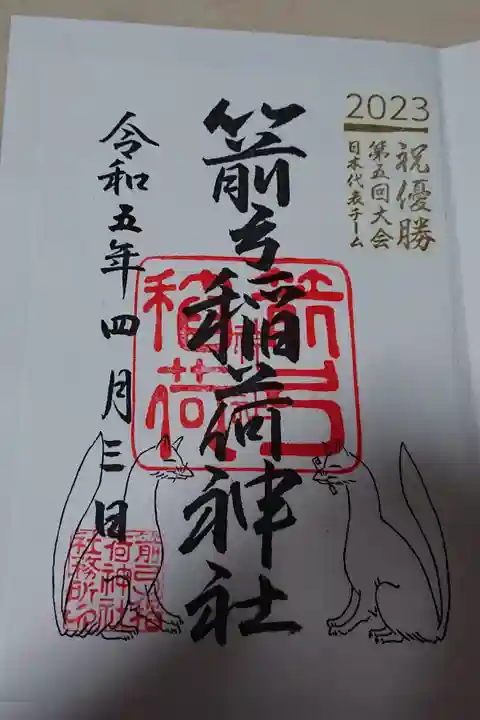 2023
祝優勝
第五回大会
日本代表チーム
箭弓稲荷神社
令和五年四月三日
箭弓
稲荷
神社
箭弓稲
荷神社
社務所